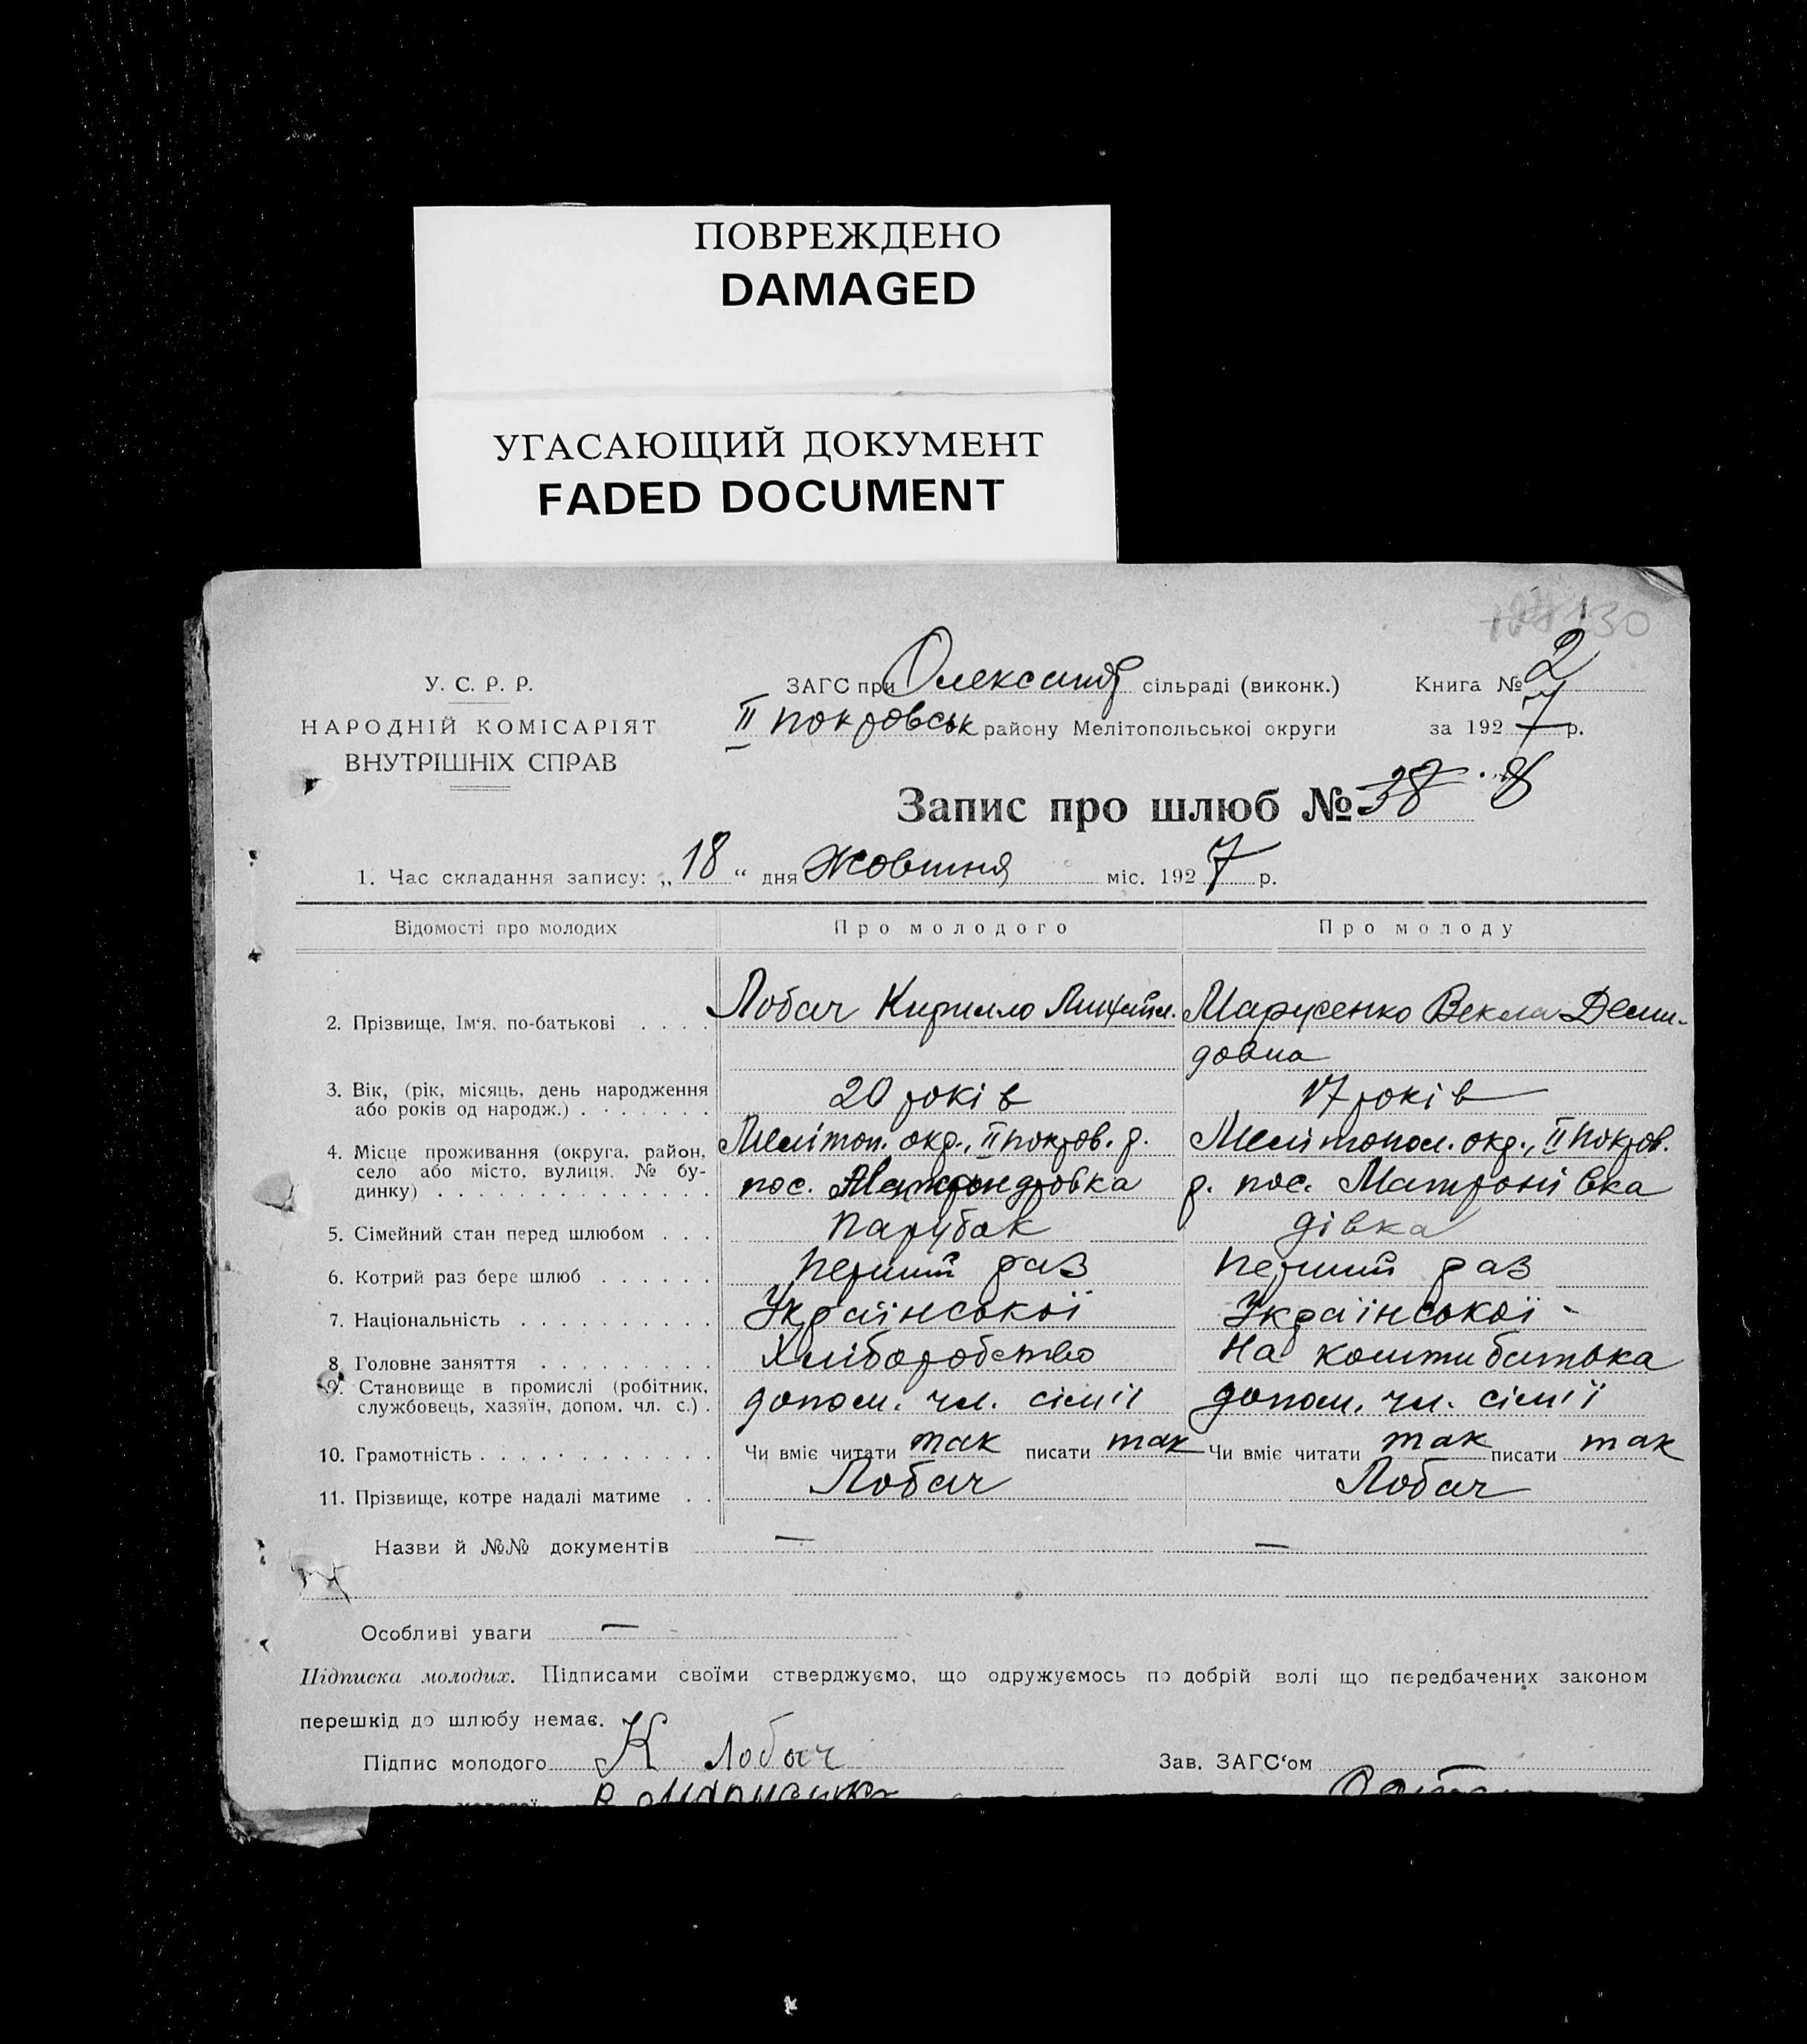 ПОВРЕЖДЕНО
DAMAGED
УГАСАЮЩИЙ ДОКУМЕНТ
FADED DOCUMENT
130
У. С. Р. Р.
НАРОДНІЙ КОМІСАРІЯТ
ВНУТРІШНІХ СПРАВ
ЗАГС при Олександр сільраді (виконк.)
Книга № 2
II покровськ району Мелітопольської округи
за 1927 р.
Запис про шлюб № 38 8
1. Час складання запису: „18“ дня Жовтня міс. 1927 р.
Відомості про молодих Про молодого Про молоду
2. Прізвище, Ім‘я, по-батькові . . . . Лобач Кирилло Михайл. Марусенко Векла Деми-
довна
3. Вік, (рік, місяць, день народження
або років од народж.) . . . . . . . 20 років 17 років
4. Місце проживання (округа, район,
село або місто, вулиця, № бу-
динку) . . . . . . . . . . . . . .
Меліт оп. окр., II покров. р.
пос. Александровка
Мелітопол. окр., II покров.
р. пос. Матронівка
5. Сімейний стан перед шлюбом . . . Парубок дівка
6. Котрий раз бере шлюб . . . . . . Перший раз Перший раз
7. Національність . . . . . . . . . . Української Української -
8. Головне заняття . . . . . . . . . Хліборобство На кошти батька
9. Становище в промислі (робітник,
службовець, хазяїн, допом. чл. с.) . допом. чл. сімʼії допом. чл. сімʼії
10. Грамотність . . . . . . . . . . . . Чи вміє читати так писати так Чи вміє читати так писати так
11. Прізвище, котре надалі матиме . . Лобач Лобач
Назви й №№ документів — —
Особливі уваги —
Підписка молодих. Підписами своїми стверджуємо, що одружуємось по добрій волі що передбачених законом
перешкід до шлюбу немає.
Підпис молодого К Лобач Зав. ЗАГС‘ом